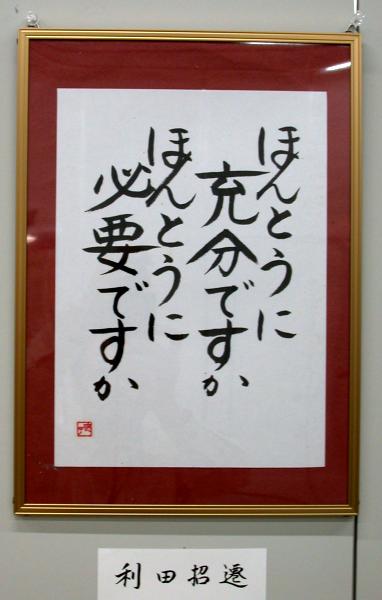 ほんとうに
充分ですか
ほんとうに
必要ですか
利田招遷